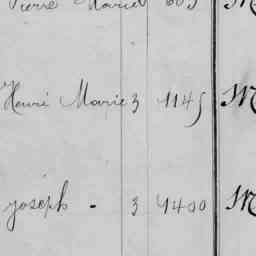 Pierre Marie 605 M
Henri Marie 3 1145 M
Joseph - 3 1400 M